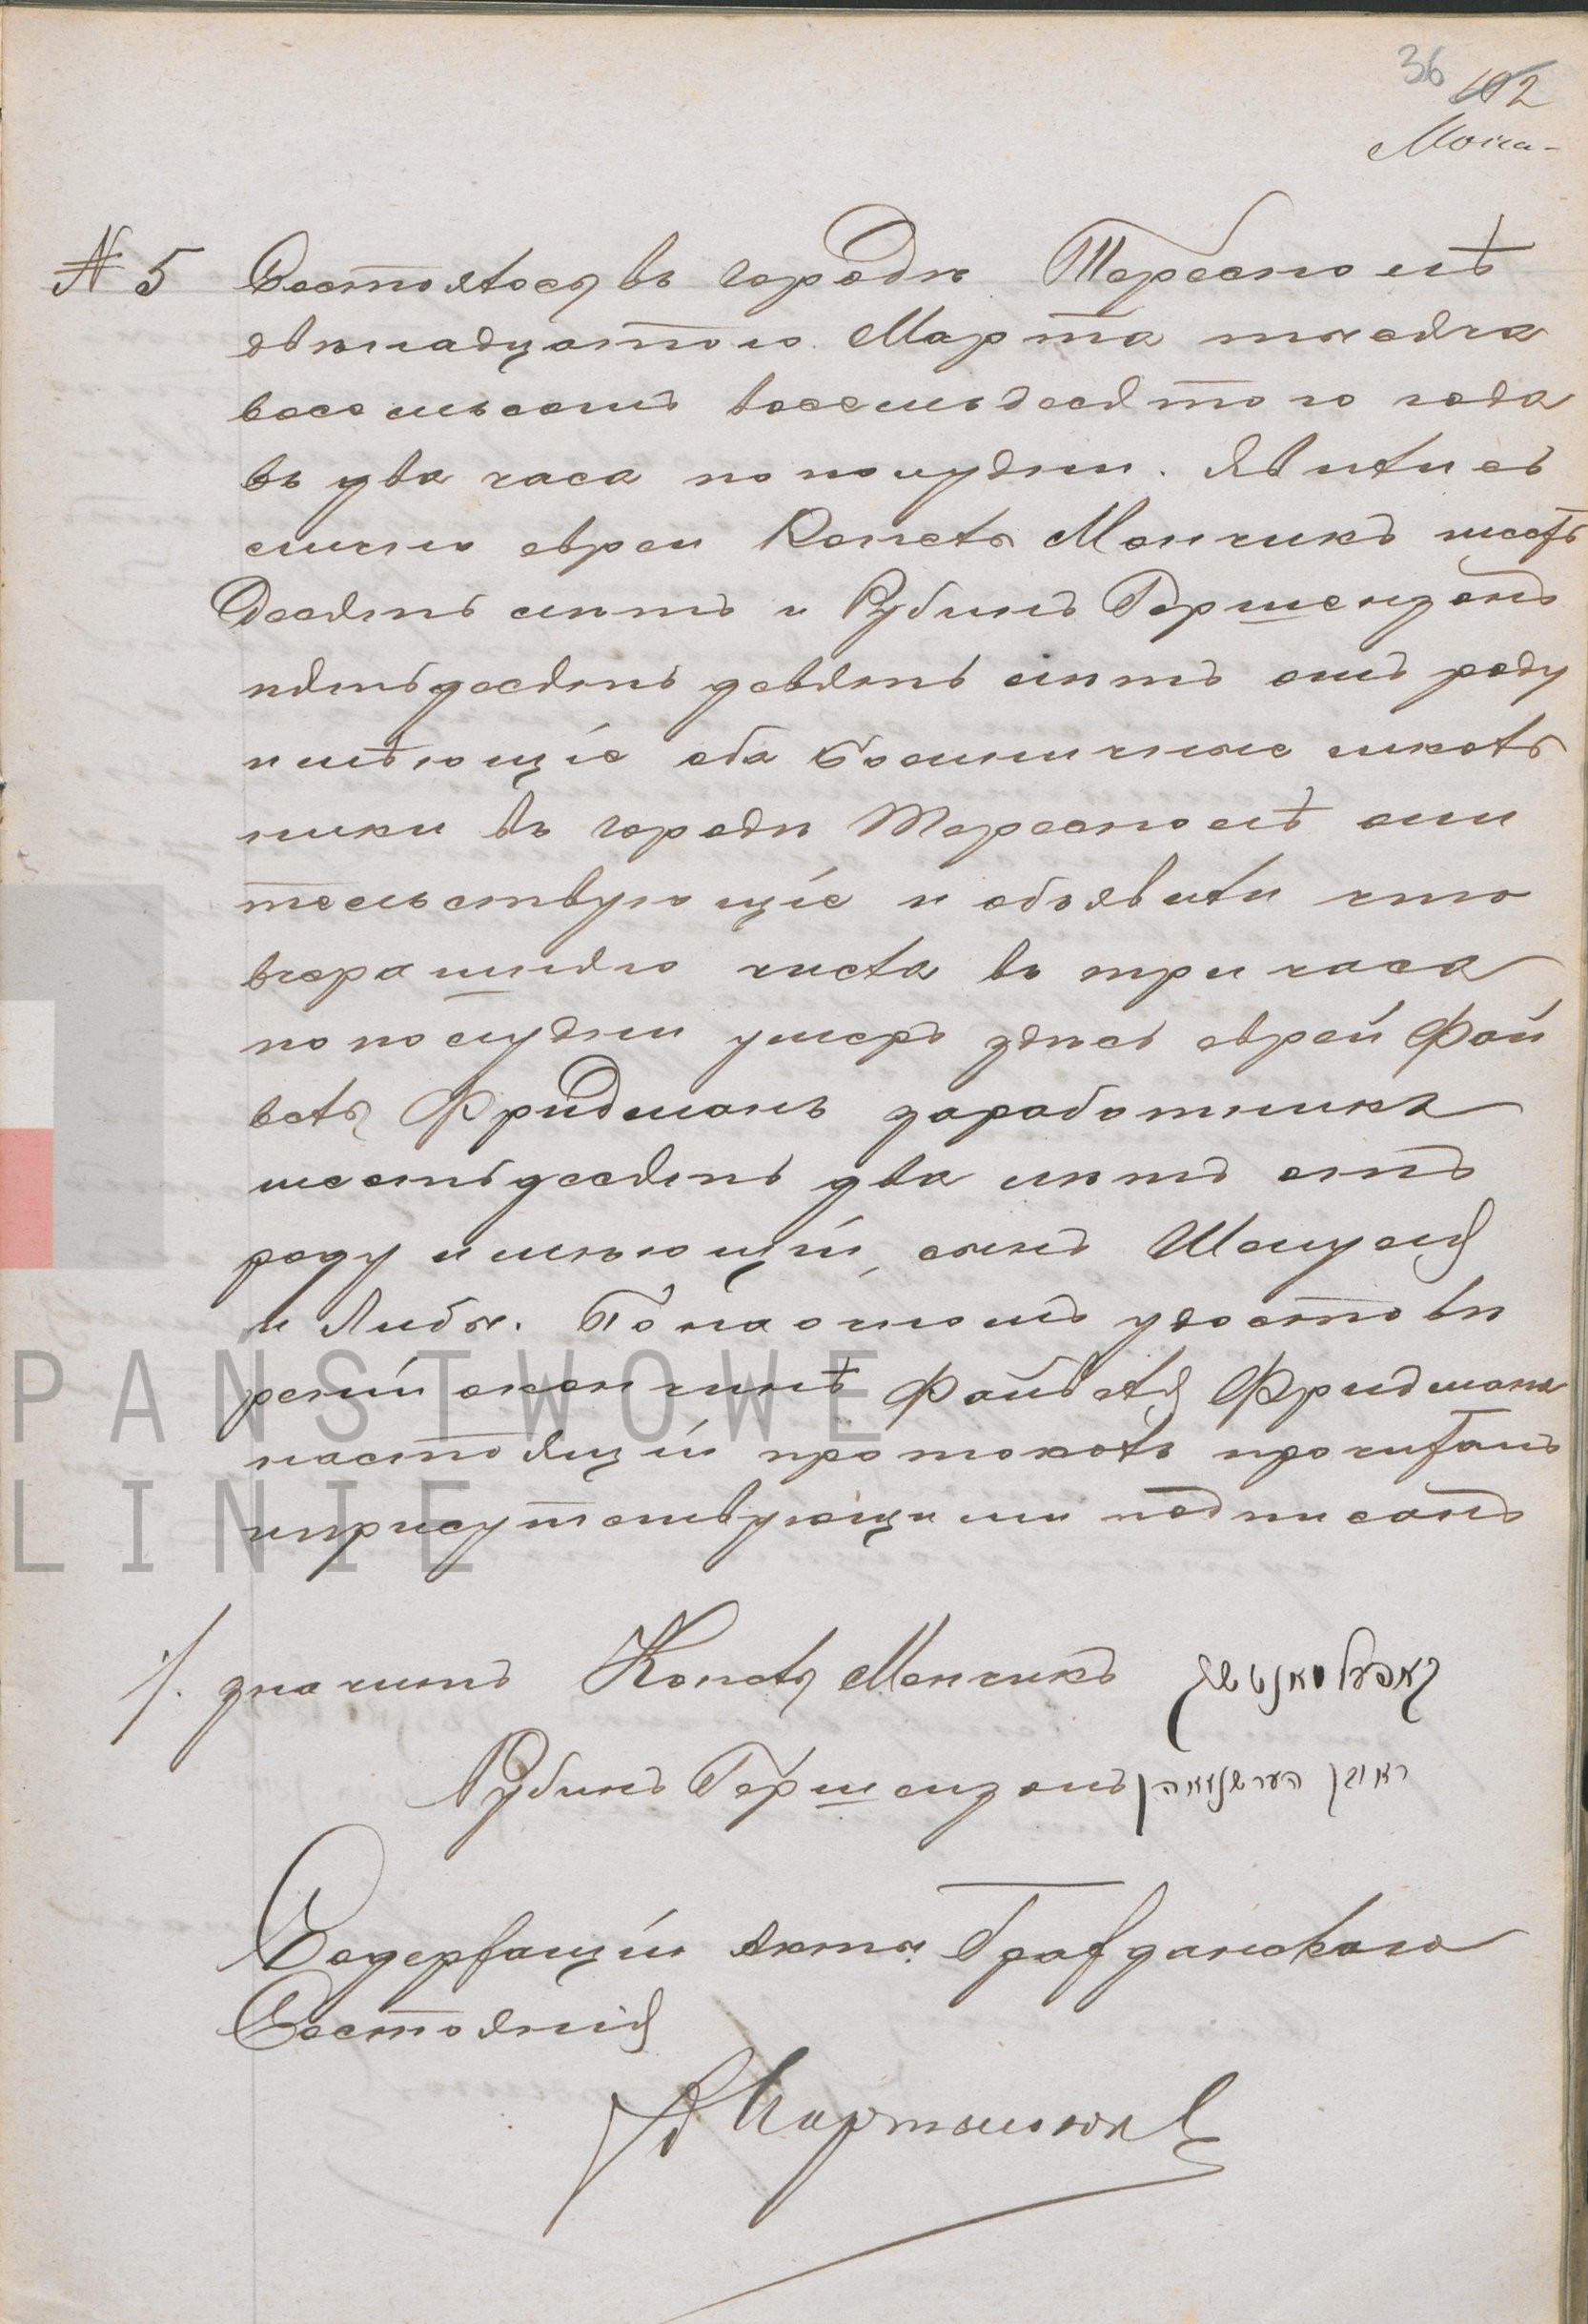 36 102
№ 5 Состоялось въ городѣ Тересполѣ
двѣнадцатого Марта тысяча
восемьсотъ восемьдесятого года
въ два часа по полудни. Явились
лично евреи Копель Мончикъ шесть
десять лѣтъ и Рубинъ Гершензонъ
пятьдесять девять лѣтъ отъ роду
имѣющіе оба больничные школь
ники въ городѣ Тересполѣ жи
тельствующіе и объявили что
вчерашняго числа въ три часа
по полудни умеръ здѣсь еврей Фай
вель Фридманъ заработникъ
шестьдесять два лѣтъ отъ
роду имѣющій, сынъ Шмуеля
и Либы. По наочномъ удостовѣ
реніи о кончинѣ Файвеля Фридмана
настоящій протоколъ прочитанъ
и присутствующими подписанъ
/. значитъ Копель Мончикъ קאפעל מאנטשיק
Рубинъ Гершензонъ ראובן הערשנזאהן
Содержащій Акты Гражданскаго
Состоянія
PAŃSTWOWE
LINIE